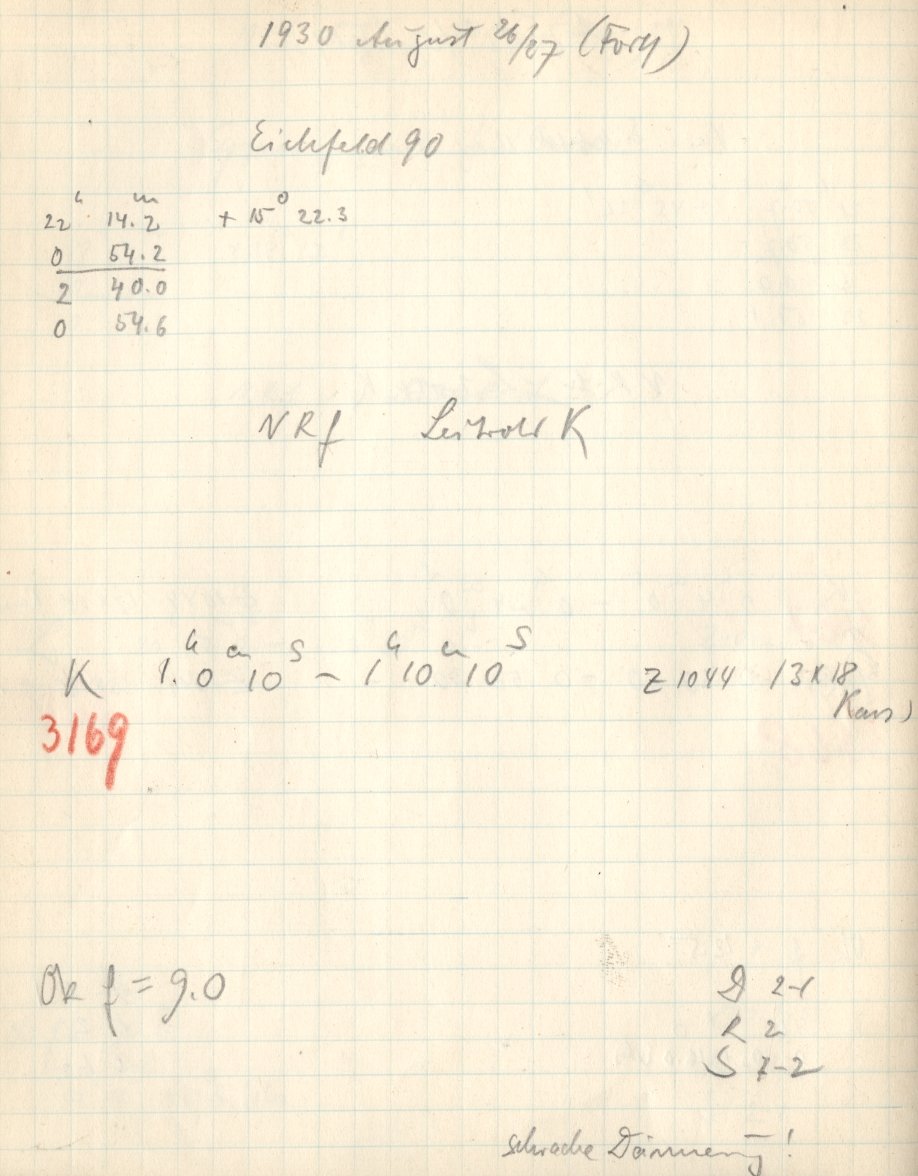 1930 August 26/27 (Forts)
Eichfeld 90
22h 14.2m + 15° 22.3
0 54.2
2 40.0
0 54.6
NRf Leitrohr K
K 1.h 0m 10s – 1h 10m 10s Z 1044 13x18
3169
Ok f = 9.0
D 2-1
R 2
S 7-2
schwache Dämmerung!